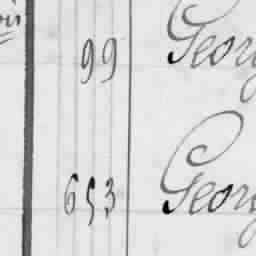 99 Geor
653 Geor